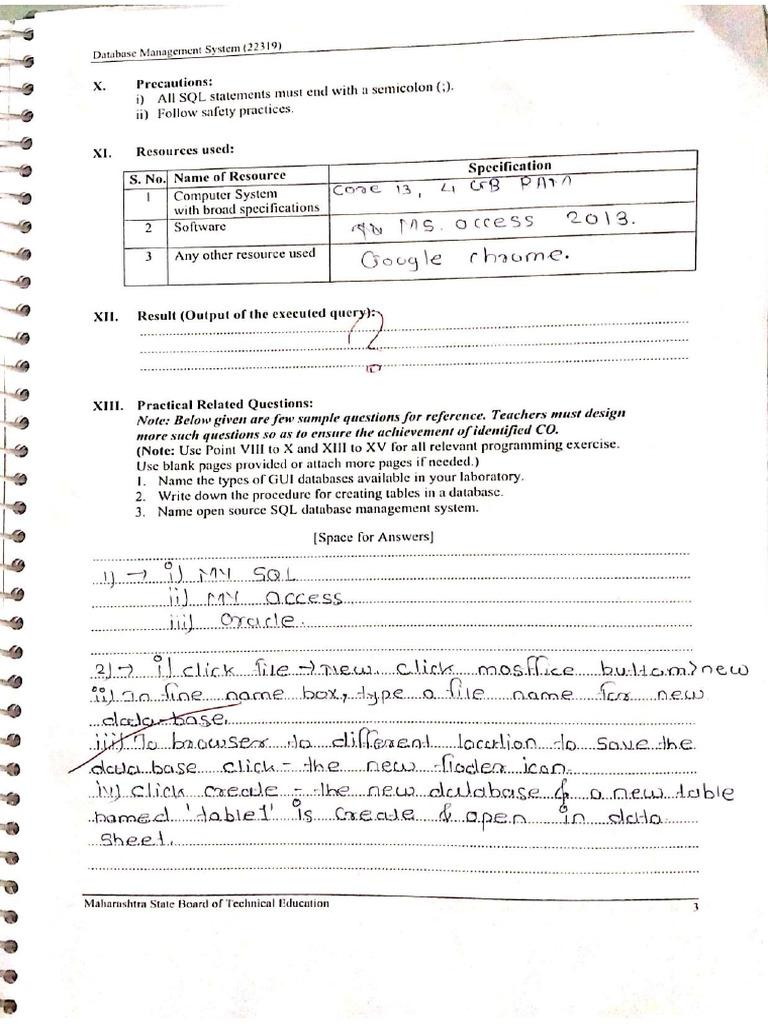 Database Management System (22319)
X. Precautions:
i) All SQL statements must end with a semicolon (;).
ii) Follow safety practices.
XI. Resources used:
S. No. Name of Resource Specification
1 Computer System
with broad specifications
Core i3, 4 GB
2 Software MS. Access 2013.
3 Any other resource used Google chrome.
XII. Result (Output of the executed query):
XIII. Practical Related Questions:
Note: Below given are few sample questions for reference. Teachers must design
more such questions so as to ensure the achievement of identified CO.
(Note: Use Point VIII to X and XIII to XV for all relevant programming exercise.
Use blank pages provided or attach more pages if needed.)
1. Name the types of GUI databases available in your laboratory.
2. Write down the procedure for creating tables in a database.
3. Name open source SQL database management system.
[Space for Answers]
1) → i) MY SQL
ii) MY Access
iii) Oracle.
2) → i) click file → New. click msoffice buttom > new
ii) In fine name box, type a file name for new
data base.
iii) To browser to different locatlion to save the
data base click - the new floder icon.
iv) click create - the new database & a new table
named 'table1' is create & open in data
sheet.
Maharashtra State Board of Technical Education 3